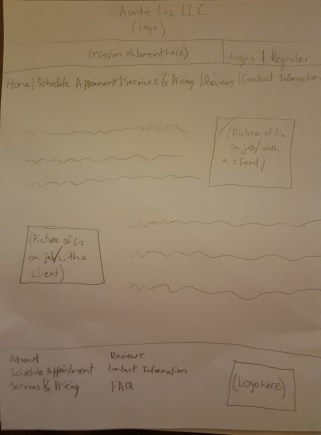 Auntie Liz LLC
(Logo)
(Mission statement here)
Login | Register
Home | Schedule Appoinment | Services & Pricing | Reviews | Contact Information
(Picture of Liz
on job/with
a client)
(Picture of Liz
on job/with a
client)
About
Schedule Appointment
Services & Pricing
Reviews
Contact Information
FAQ
(Logo here)